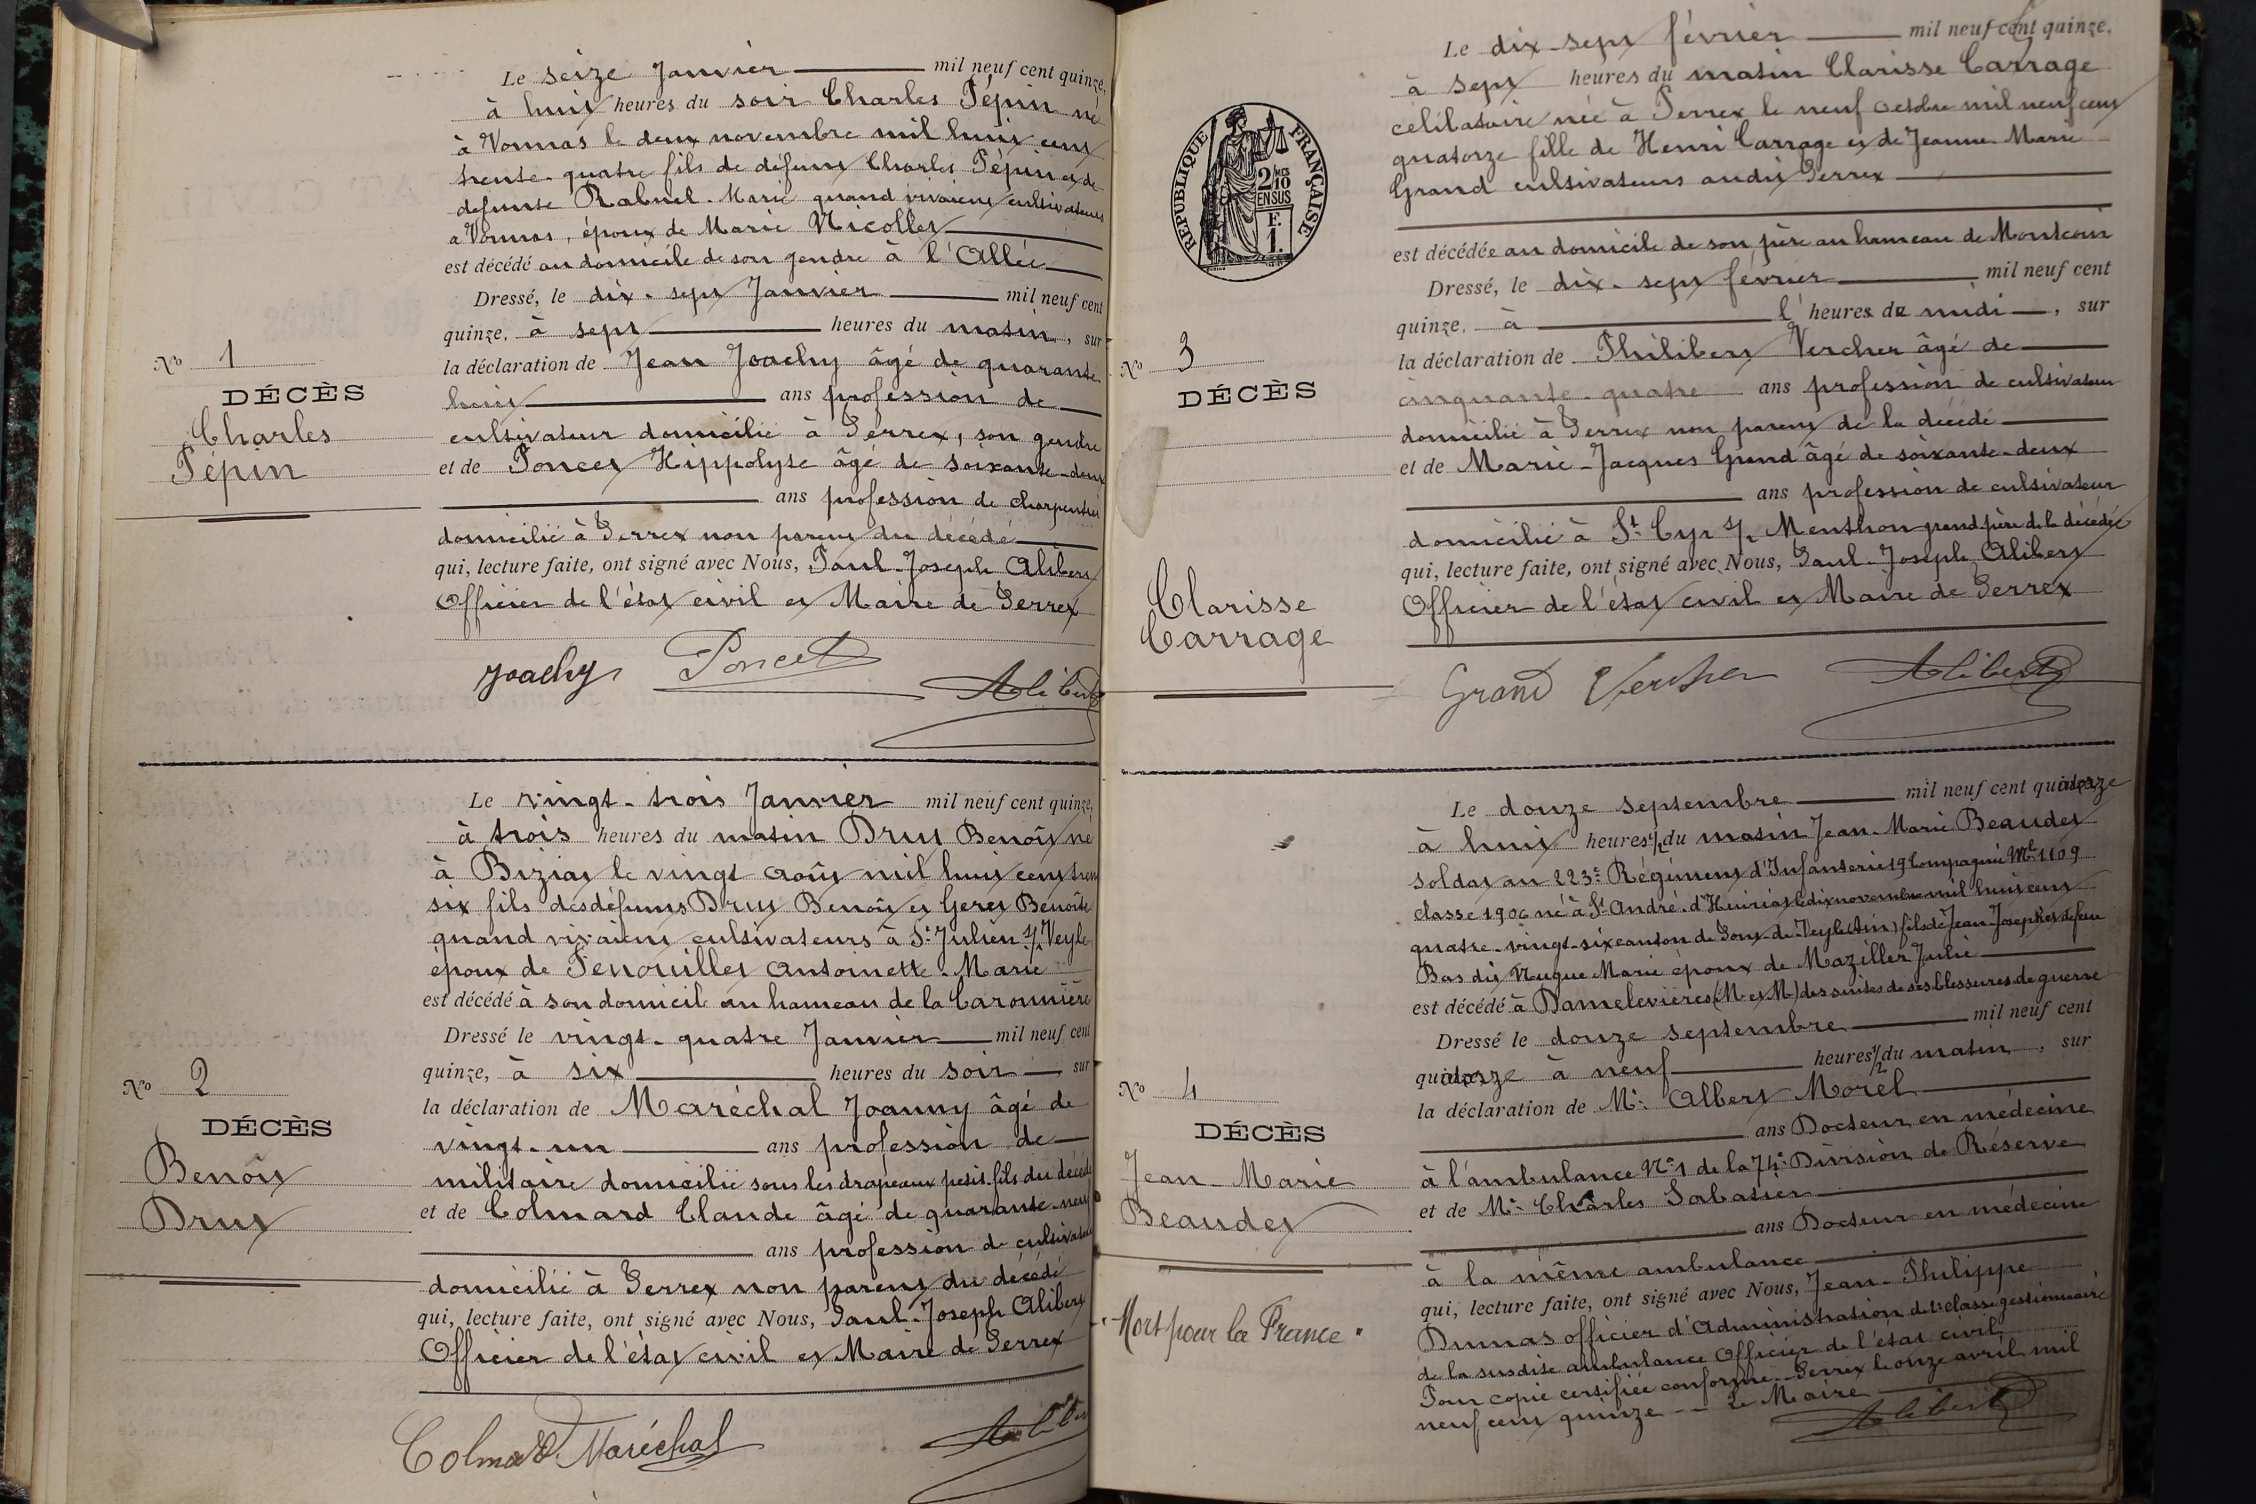 Le seize Janvier mil neuf cent quinze,
à huit heures du soir Charles Pépin né
à Vonnas le deux novembre mil huit cent
trente-quatre fils de défunt Charles Pépin et de
defunte Rabuel Marie quand vivaient cultivateurs
a Vonnas, époux de Marie Nicollet
est décédé au domicile de son gendre à l'Allée
Dressé, le dix-sept Janvier mil neuf cent
quinze, à sept heures du matin, sur
No 1
la déclaration de Jean Joachy âgé de quarante
DÉCÈS
huit ans profession de
Charles
cultivateur domicilié à Perrex, son gendre
Pépin
et de Poncet Hippolyte âgé de soixante-deux
ans profession de charpentier
domicilié à Perrex non parent du décédé
qui, lecture faite, ont signé avec Nous, Paul-Joseph Alibert
Officier de l'état civil et Maire de Perrex
Joachy Poncet Alibert
Le vingt-trois Janvier mil neuf cent quinze,
à trois heures du matin Drut Benoît né
à Biziat le vingt août mil huit cent trente
six fils des défunts Drut Benoît et Geret Benoîte
quand vivaient cultivateurs à St Julien s/ Veyle
époux de Fenouillet Antoinette-Marie
est décédé à son domicile au hameau de la Caronnière
Dressé le vingt-quatre Janvier mil neuf cent
quinze, à six heures du soir, sur
No 2
la déclaration de Maréchal Joanny âgé de
DÉCÈS
vingt-un ans profession de
Benoît
militaire domicilié sous les drapeaux petit-fils du décédé
Drut
et de Colmard Claude âgé de quarante-neuf
ans profession de cultivateur
domicilié à Perrex non parent du décédé
qui, lecture faite, ont signé avec Nous, Paul-Joseph Alibert
Officier de l'état civil et Maire de Perrex
Colmard Maréchal Alibert
Le dix-sept février mil neuf cent quinze,
à sept heures du matin Clarisse Carrage
célibataire née à Perrex le neuf octobre mil neuf cent
quatorze fille de Henri Carrage et de Jeanne Marie
Grand cultivateurs audit Perrex
RÉPUBLIQUE FRANÇAISE
2/10 MES
EN SUS
F.
1.
est décédée au domicile de son père au hameau de Montcoin
Dressé, le dix-sept février mil neuf cent
quinze, à l'heures de midi, sur
No 3
la déclaration de Philibert Vercher âgé de
DÉCÈS
cinquante-quatre ans profession de cultivateur
domicilié à Perrex non parent de la décédé
et de Marie-Jacques Grand âgé de soixante-deux
ans profession de cultivateur
domicilié à St Cyr s/ Menthon grand-père de la décédée
qui, lecture faite, ont signé avec Nous, Paul-Joseph Alibert
Clarisse
Carrage
Officier de l'état civil et Maire de Perrex
Grand Vercher Alibert
Le douze septembre mil neuf cent quatorze
à huit heures 1/2 du matin Jean-Marie Beaudet
Soldat au 223e Régiment d'Infanterie 19 Compagnie Mle 1109
classe 1906 né à St André-d'Huiriat le dix novembre mil huit cent
quatre-vingt-six canton de Pont-de-Veyle (Ain) fils de Jean-Joseph et de feue
Bas dit Nugue Marie époux de Mazillet Julie
est décédé à Damelevières (M et M) des suites de ses blessures de guerre
Dressé le douze septembre mil neuf cent
quatorze à neuf heures 1/2 du matin, sur
No 4
la déclaration de Mr. Albert Morel
DÉCÈS
ans Docteur en médecine
Jean-Marie
à l'ambulance No 1 de la 74e Division de Réserve
Beaudet
et de Mr. Charles Sabatier
ans Docteur en médecine
à la même ambulance
"Mort pour la France"
qui, lecture faite, ont signé avec Nous, Jean-Philippe
Dumas officier d'administration de 1e classe gestionnaire
de la susdite ambulance Officier de l'état civil,
Pour copie certifiée conforme. Perrex le onze avril mil
neuf cent quinze -- Le Maire
Alibert